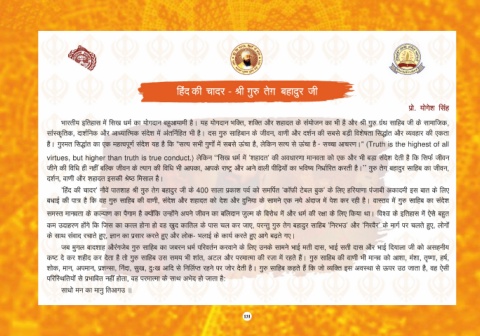 हिंद की चादर - श्री गुरु तेग़ बहादुर जी
प्रो. योगेश सिंह
भारतीय इतिहास में सिख धर्म का योगदान बहुआयामी है। यह योगदान भक्ति, शक्ति और शहादत के संयोजन का भी है और श्री गुरु ग्रंथ साहिब जी के सामाजिक,
सांस्कृतिक, दार्शनिक और आध्यात्मिक संदेश में अंतर्निहित भी है। दस गुरु साहिबान के जीवन, वाणी और दर्शन की सबसे बड़ी विशेषता सिद्धांत और व्यवहार की एकता
है। गुरमत सिद्धांत का एक महत्वपूर्ण संदेश यह है कि "सत्य सभी गुणों में सबसे ऊंचा है, लेकिन सत्य से ऊंचा है - सच्चा आचरण।" (Truth is the highest of all
virtues, but higher than truth is true conduct.) लेकिन "सिख धर्म में 'शहादत' की अवधारणा मानवता को एक और भी बड़ा संदेश देती है कि सिर्फ जीवन
जीने की विधि ही नहीं बल्कि जीवन के त्याग की विधि भी आपका, आपके राष्ट्र और आने वाली पीढ़ियों का भविष्य निर्धारित करती है।" गुरु तेग़ बहादुर साहिब का जीवन,
दर्शन, वाणी और शहादत इसकी श्रेष्ठ मिसाल है।
'हिंद की चादर' नौवें पातशाह श्री गुरु तेग़ बहादुर जी के 400 साला प्रकाश पर्व को समर्पित 'कॉफी टेबल बुक' के लिए हरियाणा पंजाबी अकादमी इस बात के लिए
बधाई की पात्र है कि वह गुरु साहिब की वाणी, संदेश और शहादत को देश और दुनिया के सामने एक नये अंदाज में पेश कर रही है। वास्तव में गुरु साहिब का संदेश
समस्त मानवता के कल्याण का पैगाम है क्योंकि उन्होंने अपने जीवन का बलिदान जुल्म के विरोध में और धर्म की रक्षा के लिए किया था। विश्व के इतिहास में ऐसे बहुत
कम उदाहरण होंगे कि जिस का काल होना हो वह खुद कातिल के पास चल कर जाए, परन्तु गुरु तेग़ बहादुर साहिब 'निरभउ' और 'निरवैर' के मार्ग पर चलते हुए, लोगों
के साथ संवाद रचाते हुए, ज्ञान का प्रकाश करते हुए और लोक- भलाई के कार्य करते हुए आगे बढ़ते गए।
जब मुगल बादशाह औरंगजेब गुरु साहिब का जबरन धर्म परिवर्तन करवाने के लिए उनके सामने भाई मती दास, भाई सती दास और भाई दियाला जी को असहनीय
कष्ट दे कर शहीद कर देता है तो गुरु साहिब उस समय भी शांत, अटल और परमात्मा की रज़ा में रहते हैं। गुरु साहिब की वाणी भी मानव को आशा, मंशा, तृष्णा, हर्ष,
शोक, मान, अपमान, प्रशन्सा, निंदा, सुख, दुःख आदि से निर्लिप्त रहने पर जोर देती है। गुरु साहिब कहते हैं कि जो व्यक्ति इस अवस्था से ऊपर उठ जाता है, वह ऐसी
परिस्थितियों से प्रभावित नहीं होता, वह परमात्मा के साथ अभेद हो जाता है:
साधो मन का मानु तिआगउ ॥
131